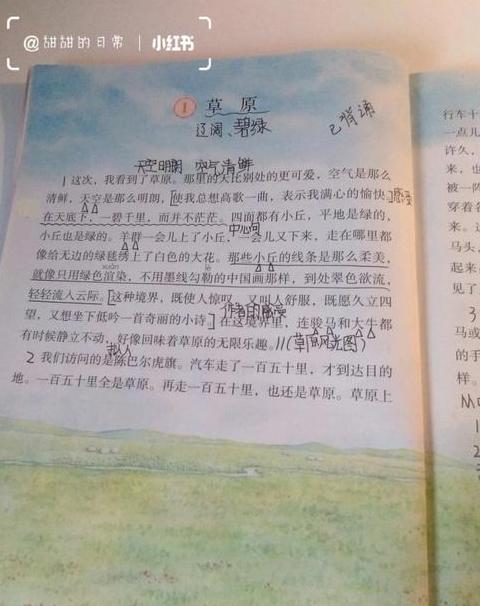 @甜甜的日常 | 小红书
1 草原
辽阔、碧绿
已背诵
天空明朗 空气清鲜
1 这次，我看到了草原。那里的天比别处的更可爱，空气是那么
清鲜，天空是那么明朗，[使我总想高歌一曲，表示我满心的愉快。]感受
在天底下，一碧千里，而并不茫茫。四面都有小丘，平地是绿的，
中心句
小丘也是绿的。羊群一会儿上了小丘，一会儿又下来，走在哪里都
像给无边的绿毯绣上了白色的大花。那些小丘的线条是那么柔美，
xuàn lè
就像只用绿色渲染，不用墨线勾勒的中国画那样，到处翠色欲流，
轻轻流入云际。[这种境界，既使人惊叹，又叫人舒服，既愿久立四
作者的感受
望，又想坐下低吟一首奇丽的小诗。]在这境界里，连骏马和大牛都
有时候静立不动，好像回味着草原的无限乐趣。//(草原风光图)
拟人
2 我们访问的是陈巴尔虎旗。汽车走了一百五十里，才到达目的
地。一百五十里全是草原。再走一百五十里，也还是草原。草原上
行车十
一点儿
许久，
来，也
被一阵
穿着各
来。
马头，
起来
见了
3
马或
的手
样。
1
2